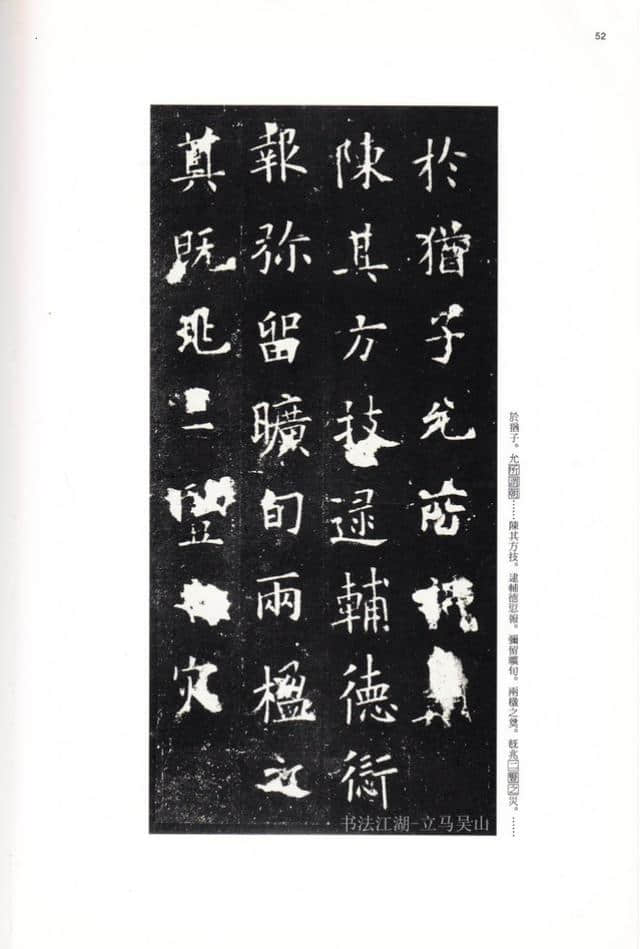 52
於猶子允
陳其方技逮輔德愆
報弥留曠旬兩楹之
奠既兆二豎灾
於猶子。允所謂朝……陳其方技。逮輔德愆報。彌留曠旬。兩楹之奠。既兆二豎之災。……
书法江湖-立马吴山